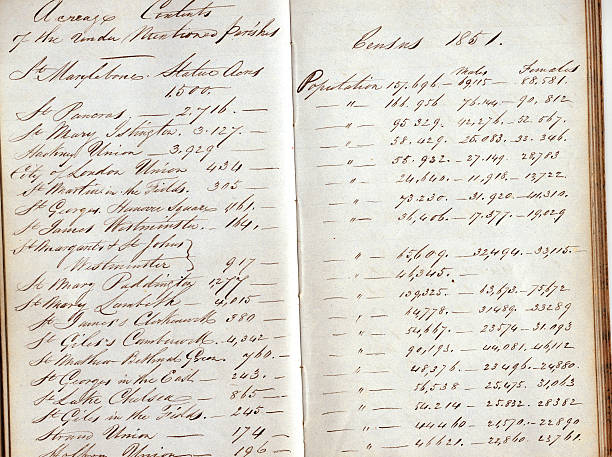 Acreage Contents
of the under Mentioned Parishes
St Marylebone. Statue Acres
1.500.
St Pancras — 2.716. —
St Mary Islington. 3.127. —
Hackney Union — 3.929
City of London Union 434 —
St Martin in the Fields. 305 —
St Georges Hanover Square 1161. —
St James Westminster. — 164. —
St Margarets & St Johns
Westminster } 917 —
St Mary Paddington 1277 —
St Mary Lambeth — 4,015 —
St James's Clerkenwell 380
St Giles's Camberwell. 4,342 —
St Mathew Bethnal Green 760. —
St Georges in the East — 243. —
St Luke Chelsea — 865 —
St Giles in the Fields. — 245 —
Strand Union — 174 —
Holborn Union — 196 —
Census 1851.
Males Females
Population 157,696. — 69,115 — 88,581.
— " — 166,956 76,144 — 90,812
— " — 95.329. 42,276 — 52.567.
— " — 58.429. 25.083. 33.346.
— " — 55.932. — 27.149. 28,783
— " — 24,640. — 11,918. 12,722.
— " — 73.230. — 31.920 — 41,310.
— " — 36,406. — 17,377 — 19,029
— " — 65,609. — 32,494. — 33,115. —
— " — 46,345. —
— " — 139,325. — 63,673. — 75,672
— " — 64,778. — 31489. — 33289
— " — 54,667. — 23574 — 31.093
— " — 90,193. — 44,081. 46,112
— " — 48,376 — 23,496. — 24,880.
— " — 56,538 — 25,475. 31,063
— " — 54.214 — 25.832. 28382
— " — 44460 — 21,570. — 22,890
— " — 46621. — 22,860. 23,761.